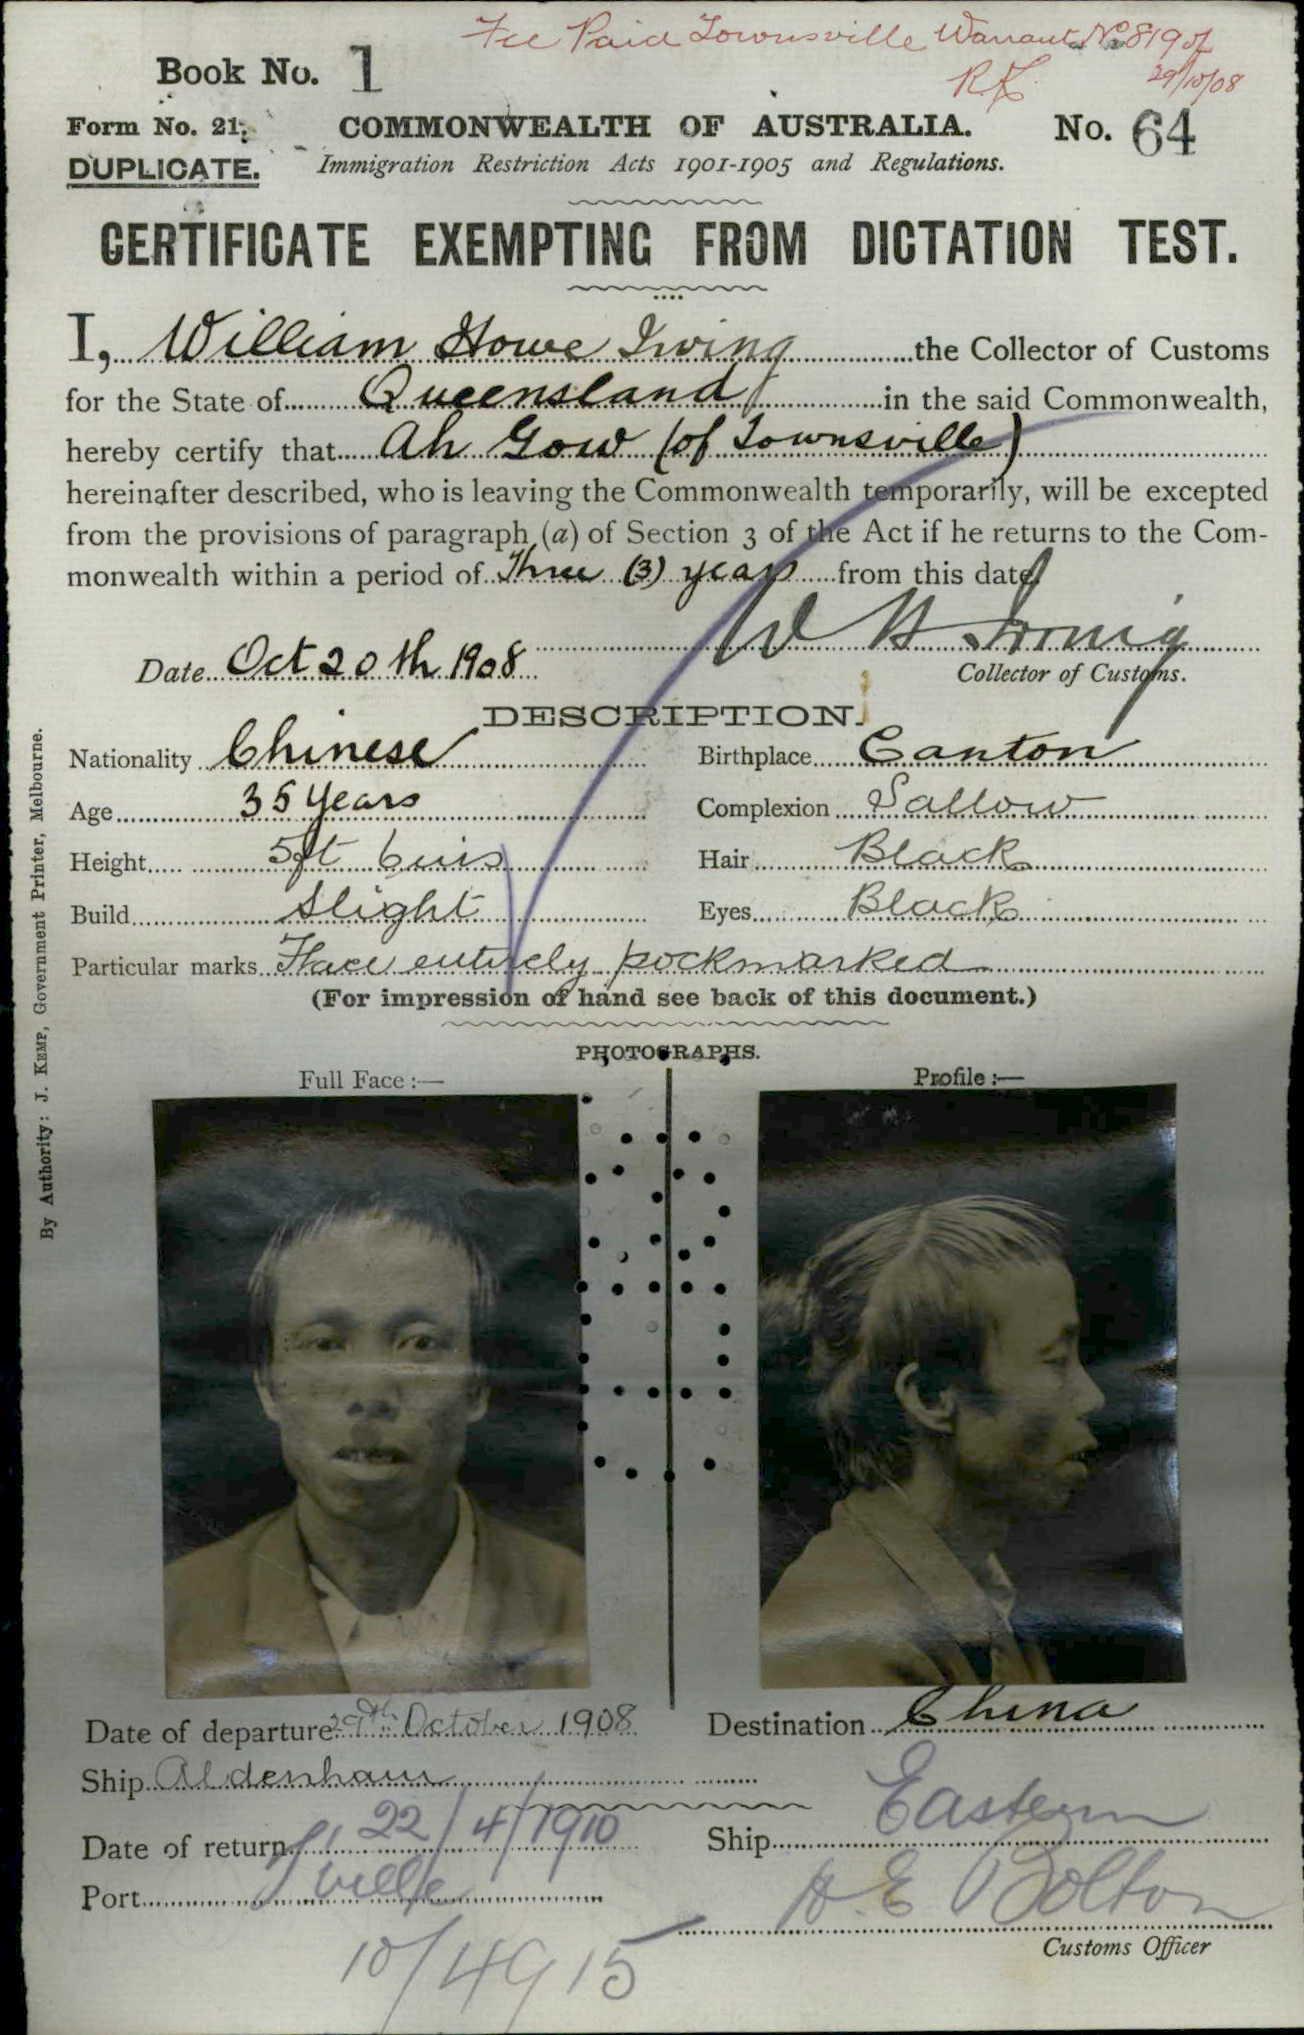 Fee Paid Townsville Warrant No 819 of
29/10/08
Book No. 1
Form No. 21.
COMMONWEALTH OF AUSTRALIA.
No. 64
DUPLICATE.
Immigration Restriction Acts 1901-1905 and Regulations.
CERTIFICATE EXEMPTING FROM DICTATION TEST.
I, William Howe Irving the Collector of Customs
for the State of Queensland in the said Commonwealth,
hereby certify that Ah Gow (of Townsville)
hereinafter described, who is leaving the Commonwealth temporarily, will be excepted
from the provisions of paragraph (a) of Section 3 of the Act if he returns to the Com-
monwealth within a period of Three (3) years from this date.
W H Irving
Date Oct 20th 1908
Collector of Customs.
DESCRIPTION.
Nationality Chinese
Birthplace Canton
Age 35 years
Complexion Sallow
Height 5ft 6 ins
Hair Black
Build Slight
Eyes Black
Particular marks Face entirely pockmarked
(For impression of hand see back of this document.)
PHOTOGRAPHS.
Full Face :—
Profile :—
Date of departure 29th October 1908
Destination China
Ship Aldenham
Date of return 22/4/1910
Ship Eastern
Port T'ville
H E Bolton
Customs Officer
10/4915
By Authority: J. KEMP, Government Printer, Melbourne.